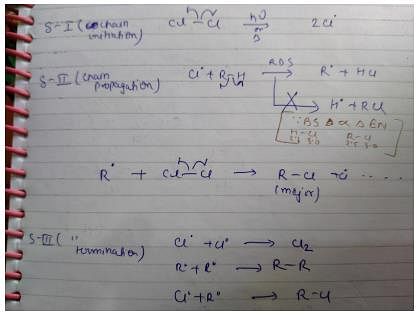 S-I (chain initiation) Cl–Cl hν or Δ → 2Cl•
S-II (chain propagation) Cl• + R–H RDS → R• + HCl
H• + RCl
∵ BS Δ ∝ Δ EN
H–Cl R–Cl
2.1 3.0 2.5 3.0
R• + Cl–Cl → R–Cl + Cl• ....
(major)
S-III ( " termination) Cl• + Cl• → Cl2
R• + R• → R–R
Cl• + R• → R–Cl